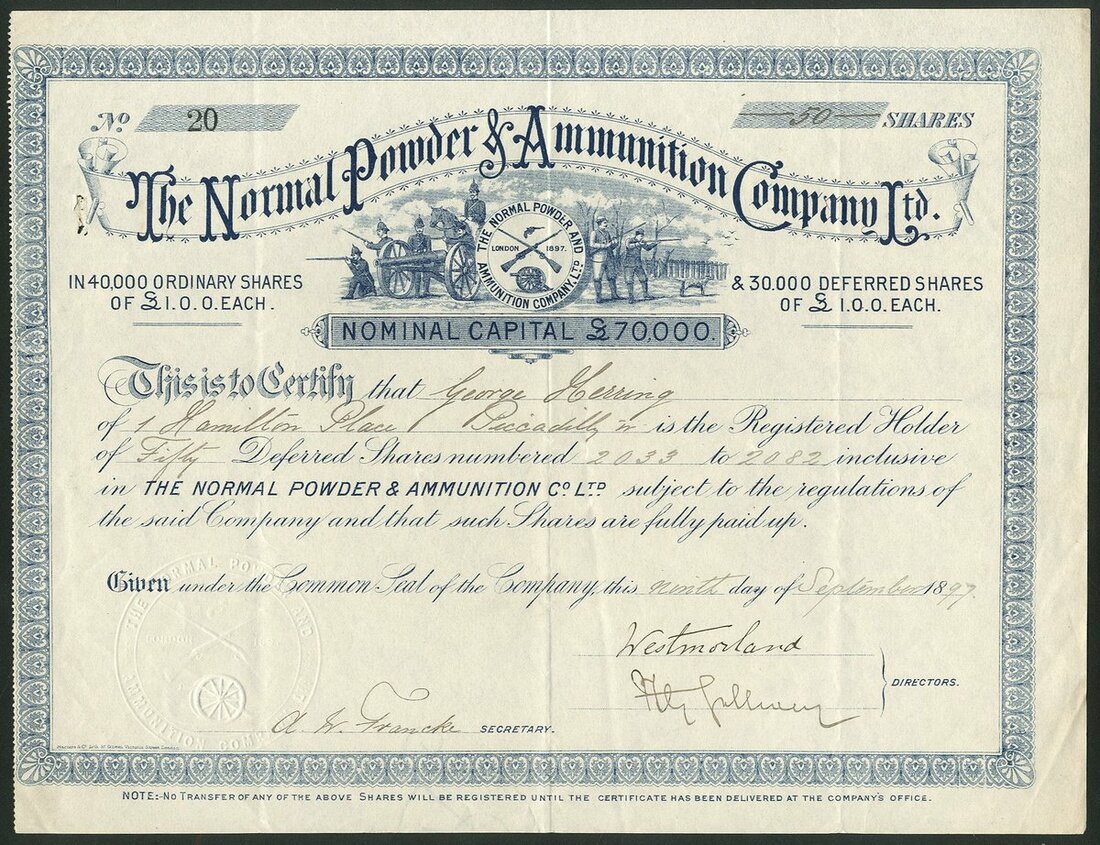 No 20
50 SHARES
The Normal Powder & Ammunition Company Ltd.
THE NORMAL POWDER AND AMMUNITION COMPANY, LTD
LONDON 1897.
IN 40,000 ORDINARY SHARES
OF £1.0.0. EACH.
& 30.000 DEFERRED SHARES
OF £1.0.0. EACH.
NOMINAL CAPITAL £70,000.
This is to Certify that George Herring
of 1 Hamilton Place Piccadilly W is the Registered Holder
of Fifty Deferred Shares numbered 2033 to 2082 inclusive
in THE NORMAL POWDER & AMMUNITION CO. LTD subject to the regulations of
the said Company and that such Shares are fully paid up.
Given under the Common Seal of the Company, this ninth day of September 1897.
THE NORMAL POWDER AND AMMUNITION COMPANY
LONDON
Westmorland
DIRECTORS.
A. W. Francke SECRETARY.
NOTE:-NO TRANSFER OF ANY OF THE ABOVE SHARES WILL BE REGISTERED UNTIL THE CERTIFICATE HAS BEEN DELIVERED AT THE COMPANY'S OFFICE.